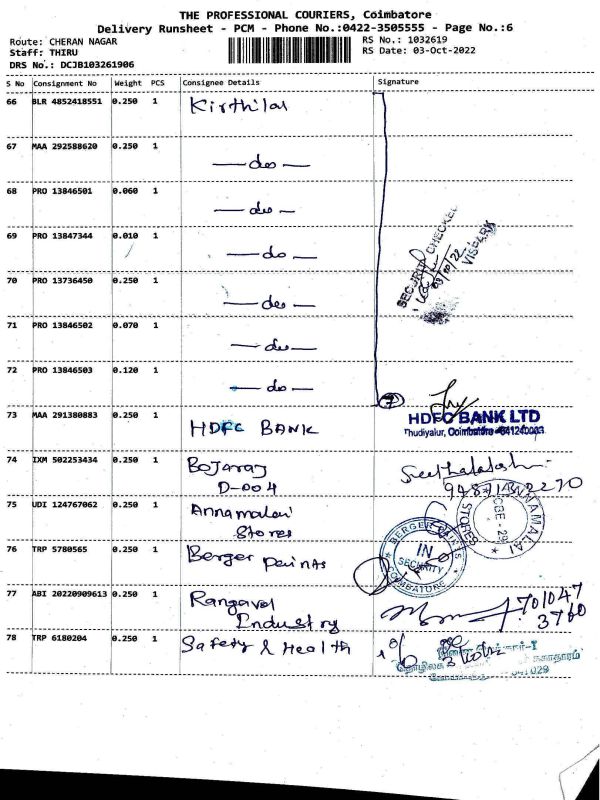 THE PROFESSIONAL COURIERS, Coimbatore
Delivery Runsheet - PCM - Phone No.:0422-3505555 - Page No.:6
Route: CHERAN NAGAR
RS No.: 1032619
Staff: THIRU
RS Date: 03-Oct-2022
DRS No.: DCJB103261906
S No Consignment No Weight PCS Consignee Details Signature
66 BLR 4852418551 0.250 1 Kirthilal
67 MAA 292588620 0.250 1 — do —
68 PRO 13846501 0.060 1 — do —
69 PRO 13847344 0.010 1 — do —
SECURITY CHECKED
03/10/22
70 PRO 13736450 0.250 1 — do —
71 PRO 13846502 0.070 1 — do —
72 PRO 13846503 0.120 1 — do —
7
73 MAA 291380883 0.250 1 HDFC BANK
HDFC BANK LTD
Thudiyalur, Coimbatore
74 IXM 502253434 0.250 1 Bojaraj
D-004
75 UDI 124767062 0.250 1 Annamalai
Stores
ANNAMALAI STORES
76 TRP 5780565 0.250 1 Berger paints
BERGER PAINTS
IN
SECURITY
COIMBATORE
77 ABI 20220909613 0.250 1 Rangavel
Industry
701047
3760
78 TRP 6180204 0.250 1 Safety & Health